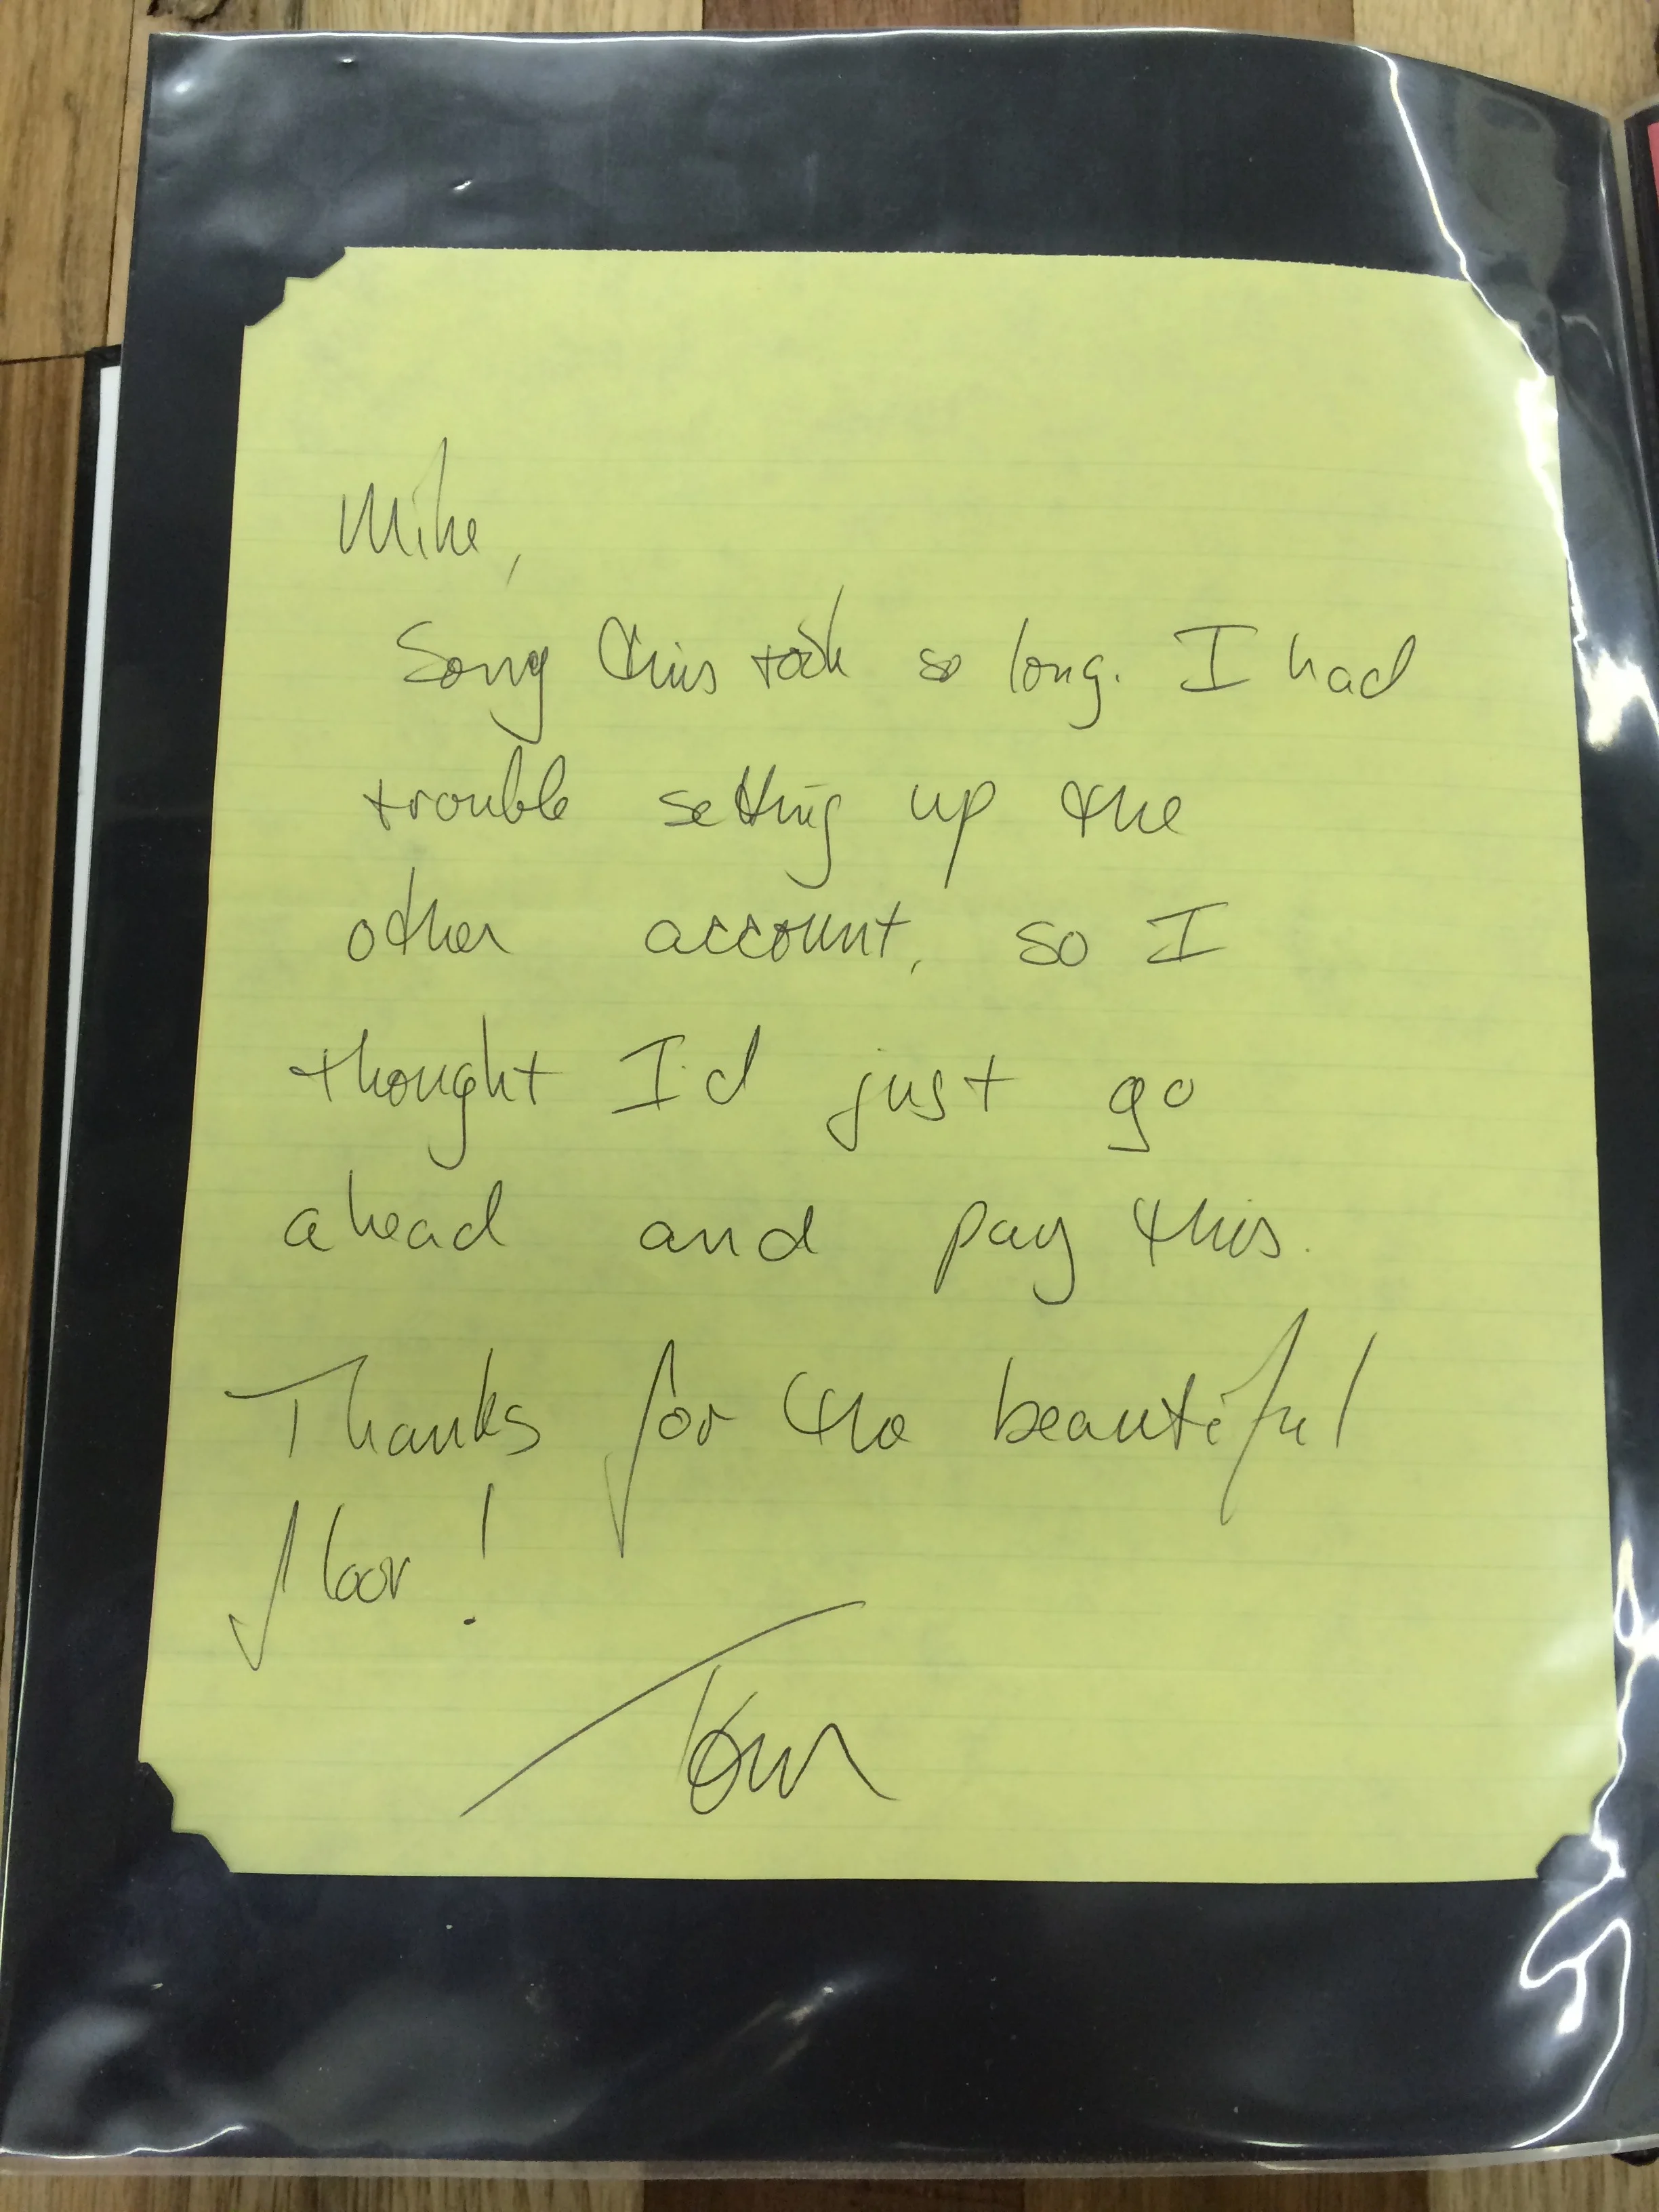 Mike,
Sorry this took so long. I had
trouble setting up the
other account, so I
thought I'd just go
ahead and pay this.
Thanks for the beautiful
floor!
Tom